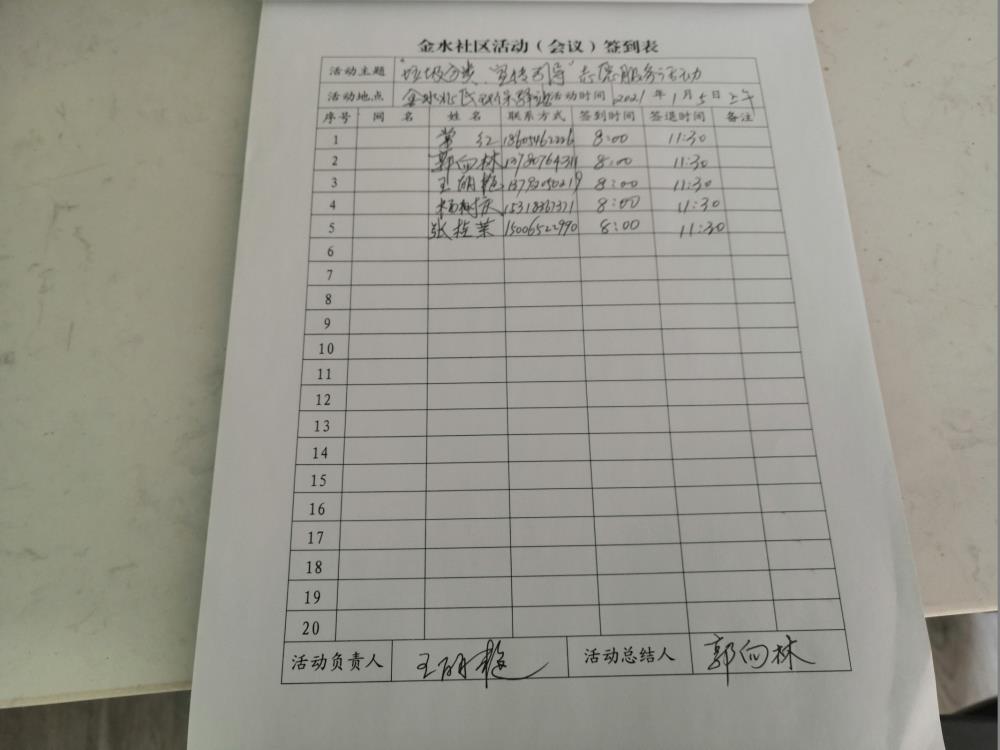 金水社区活动（会议）签到表
活动主题 "垃圾分类 宣传引导"志愿服务活动
活动地点 金水 活动时间 2021年1月5日上午
序号 间名 姓名 联系方式 签到时间 签退时间 备注
1 红 8:00 11:30
2 郭向林 8:00 11:30
3 王丽艳 8:00 11:30
4 杨树庆 8:00 11:30
5 张桂荣 15006522990 8:00 11:30
6
7
8
9
10
11
12
13
14
15
16
17
18
19
20
活动负责人 王丽艳 活动总结人 郭向林